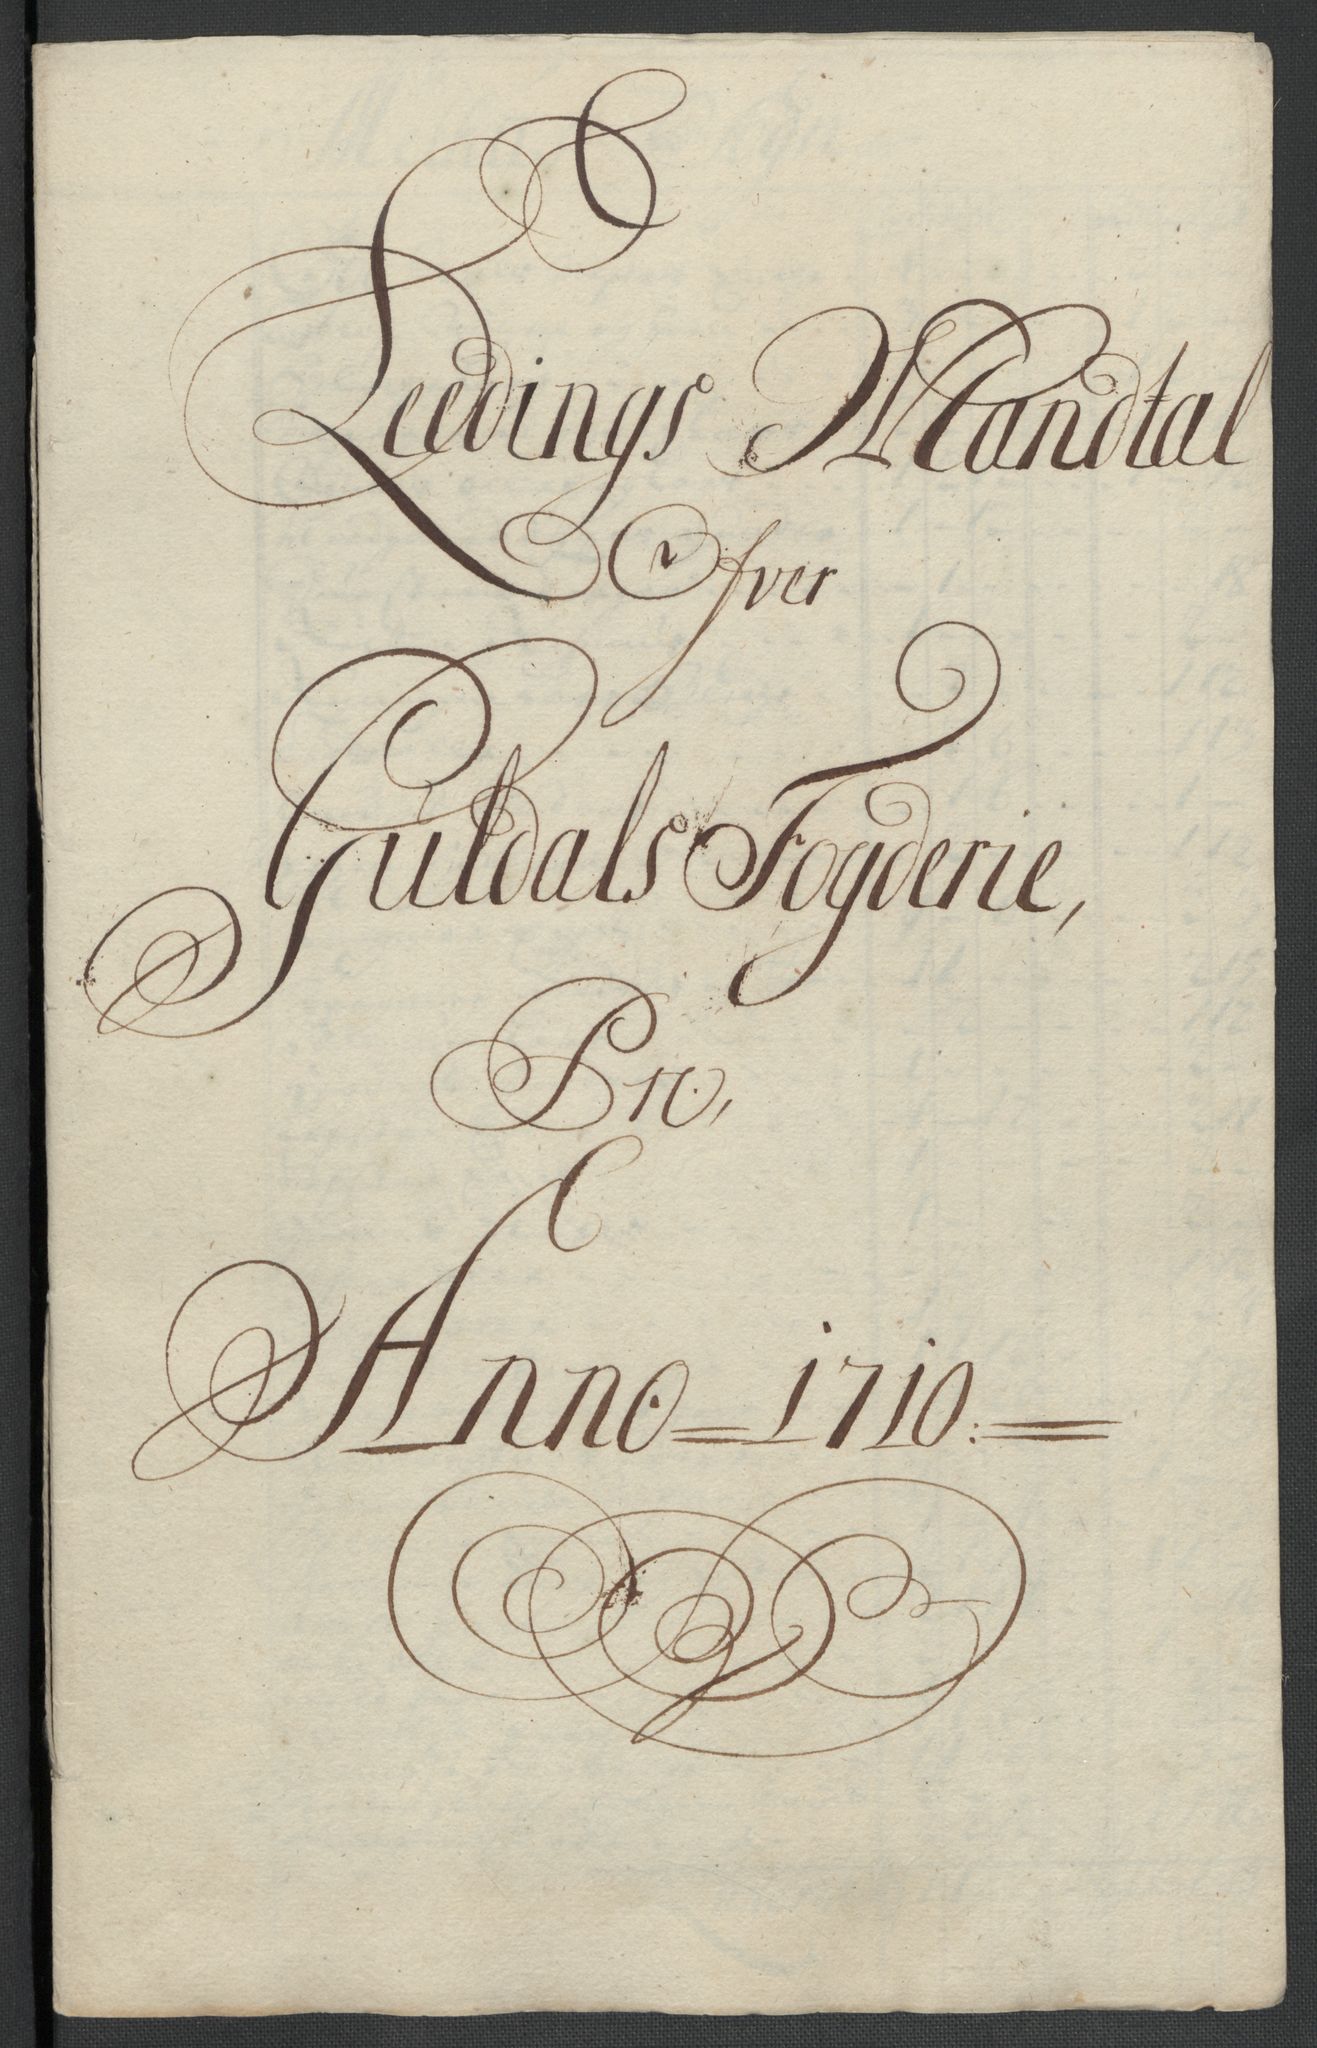 Leedings Mandtal
Ofver
Guldals Fogderie,
Pro,
Anno 1710.